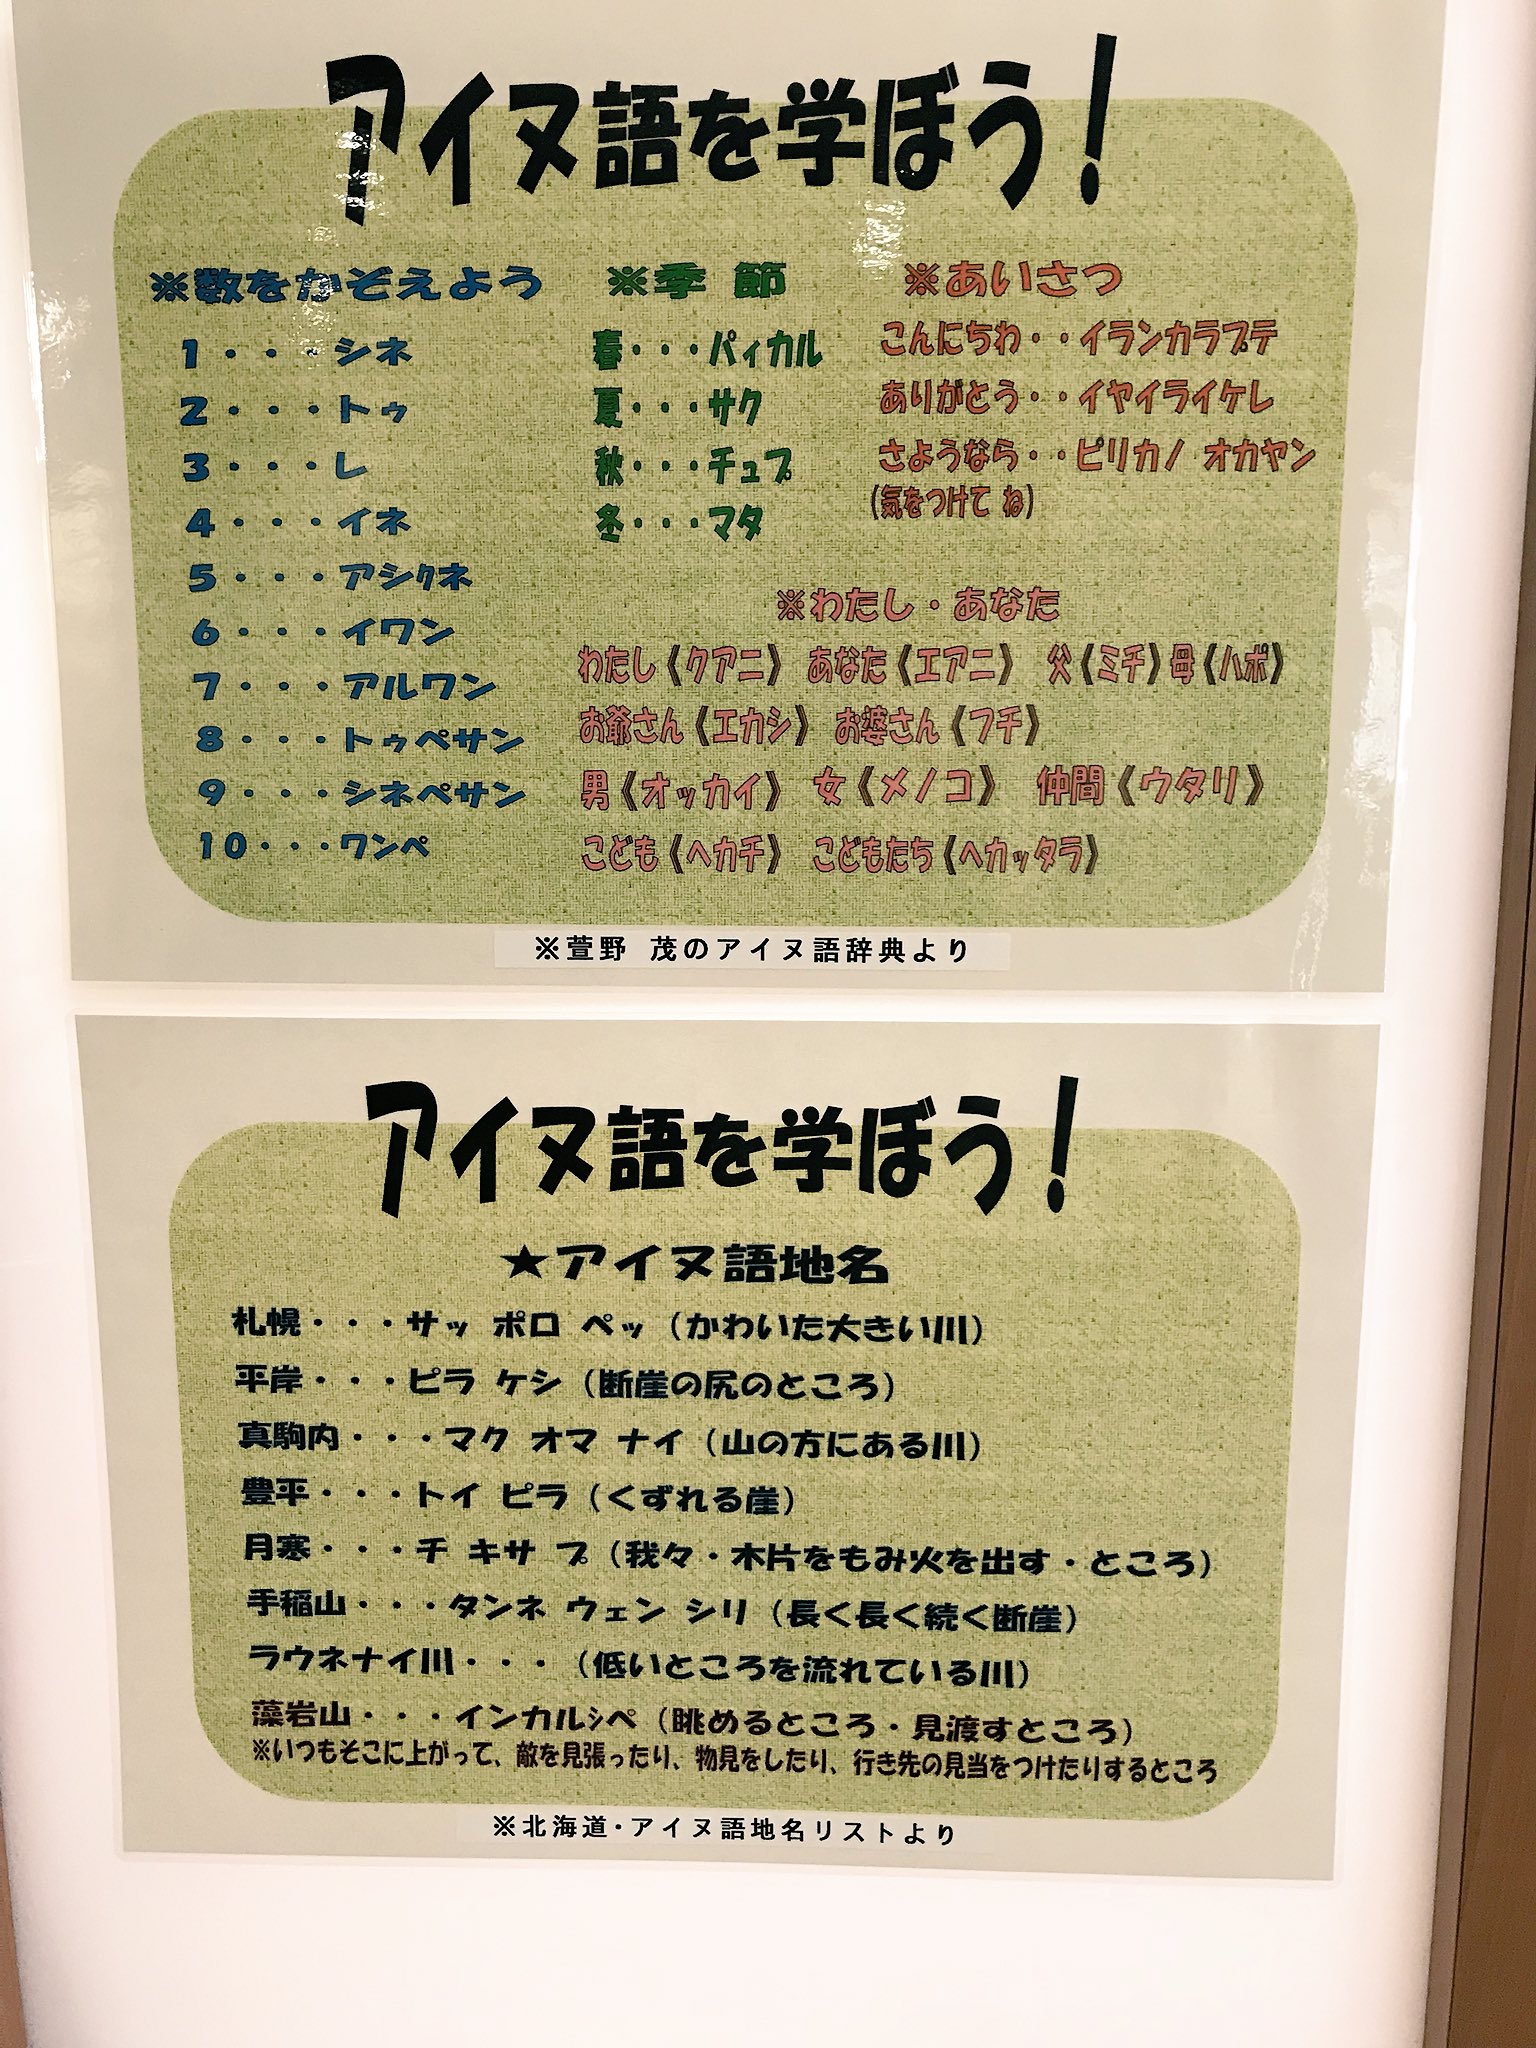 アイヌ語を学ぼう!
※数をかぞえよう
1・・・シネ
2・・・トゥ
3・・・レ
4・・・イネ
5・・・アシㇰネ
6・・・イワン
7・・・アルワン
8・・・トゥペサン
9・・・シネペサン
10・・・ワンペ
※季 節
春・・・パィカル
夏・・・サク
秋・・・チュプ
冬・・・マタ
※あいさつ
こんにちわ・・イランカラプテ
ありがとう・・イヤイライケレ
さようなら・・ピリカノ オカヤン
(気をつけて ね)
※わたし・あなた
わたし《クアニ》 あなた《エアニ》 父《ミチ》母《ハポ》
お爺さん《エカシ》 お婆さん《フチ》
男《オッカイ》 女《メノコ》 仲間《ウタリ》
こども《ヘカチ》 こどもたち《ヘカッタラ》
※萱野 茂のアイヌ語辞典より
アイヌ語を学ぼう!
★アイヌ語地名
札幌・・・サッ ポロ ペッ(かわいた大きい川)
平岸・・・ピラ ケシ(断崖の尻のところ)
真駒内・・・マク オマ ナイ(山の方にある川)
豊平・・・トイ ピラ(くずれる崖)
月寒・・・チ キサ プ(我々・木片をもみ火を出す・ところ)
手稲山・・・タンネ ウェン シリ(長く長く続く断崖)
ラウネナイ川・・・(低いところを流れている川)
藻岩山・・・インカルㇱペ(眺めるところ・見渡すところ)
※いつもそこに上がって、敵を見張ったり、物見をしたり、行き先の見当をつけたりするところ
※北海道・アイヌ語地名リストより